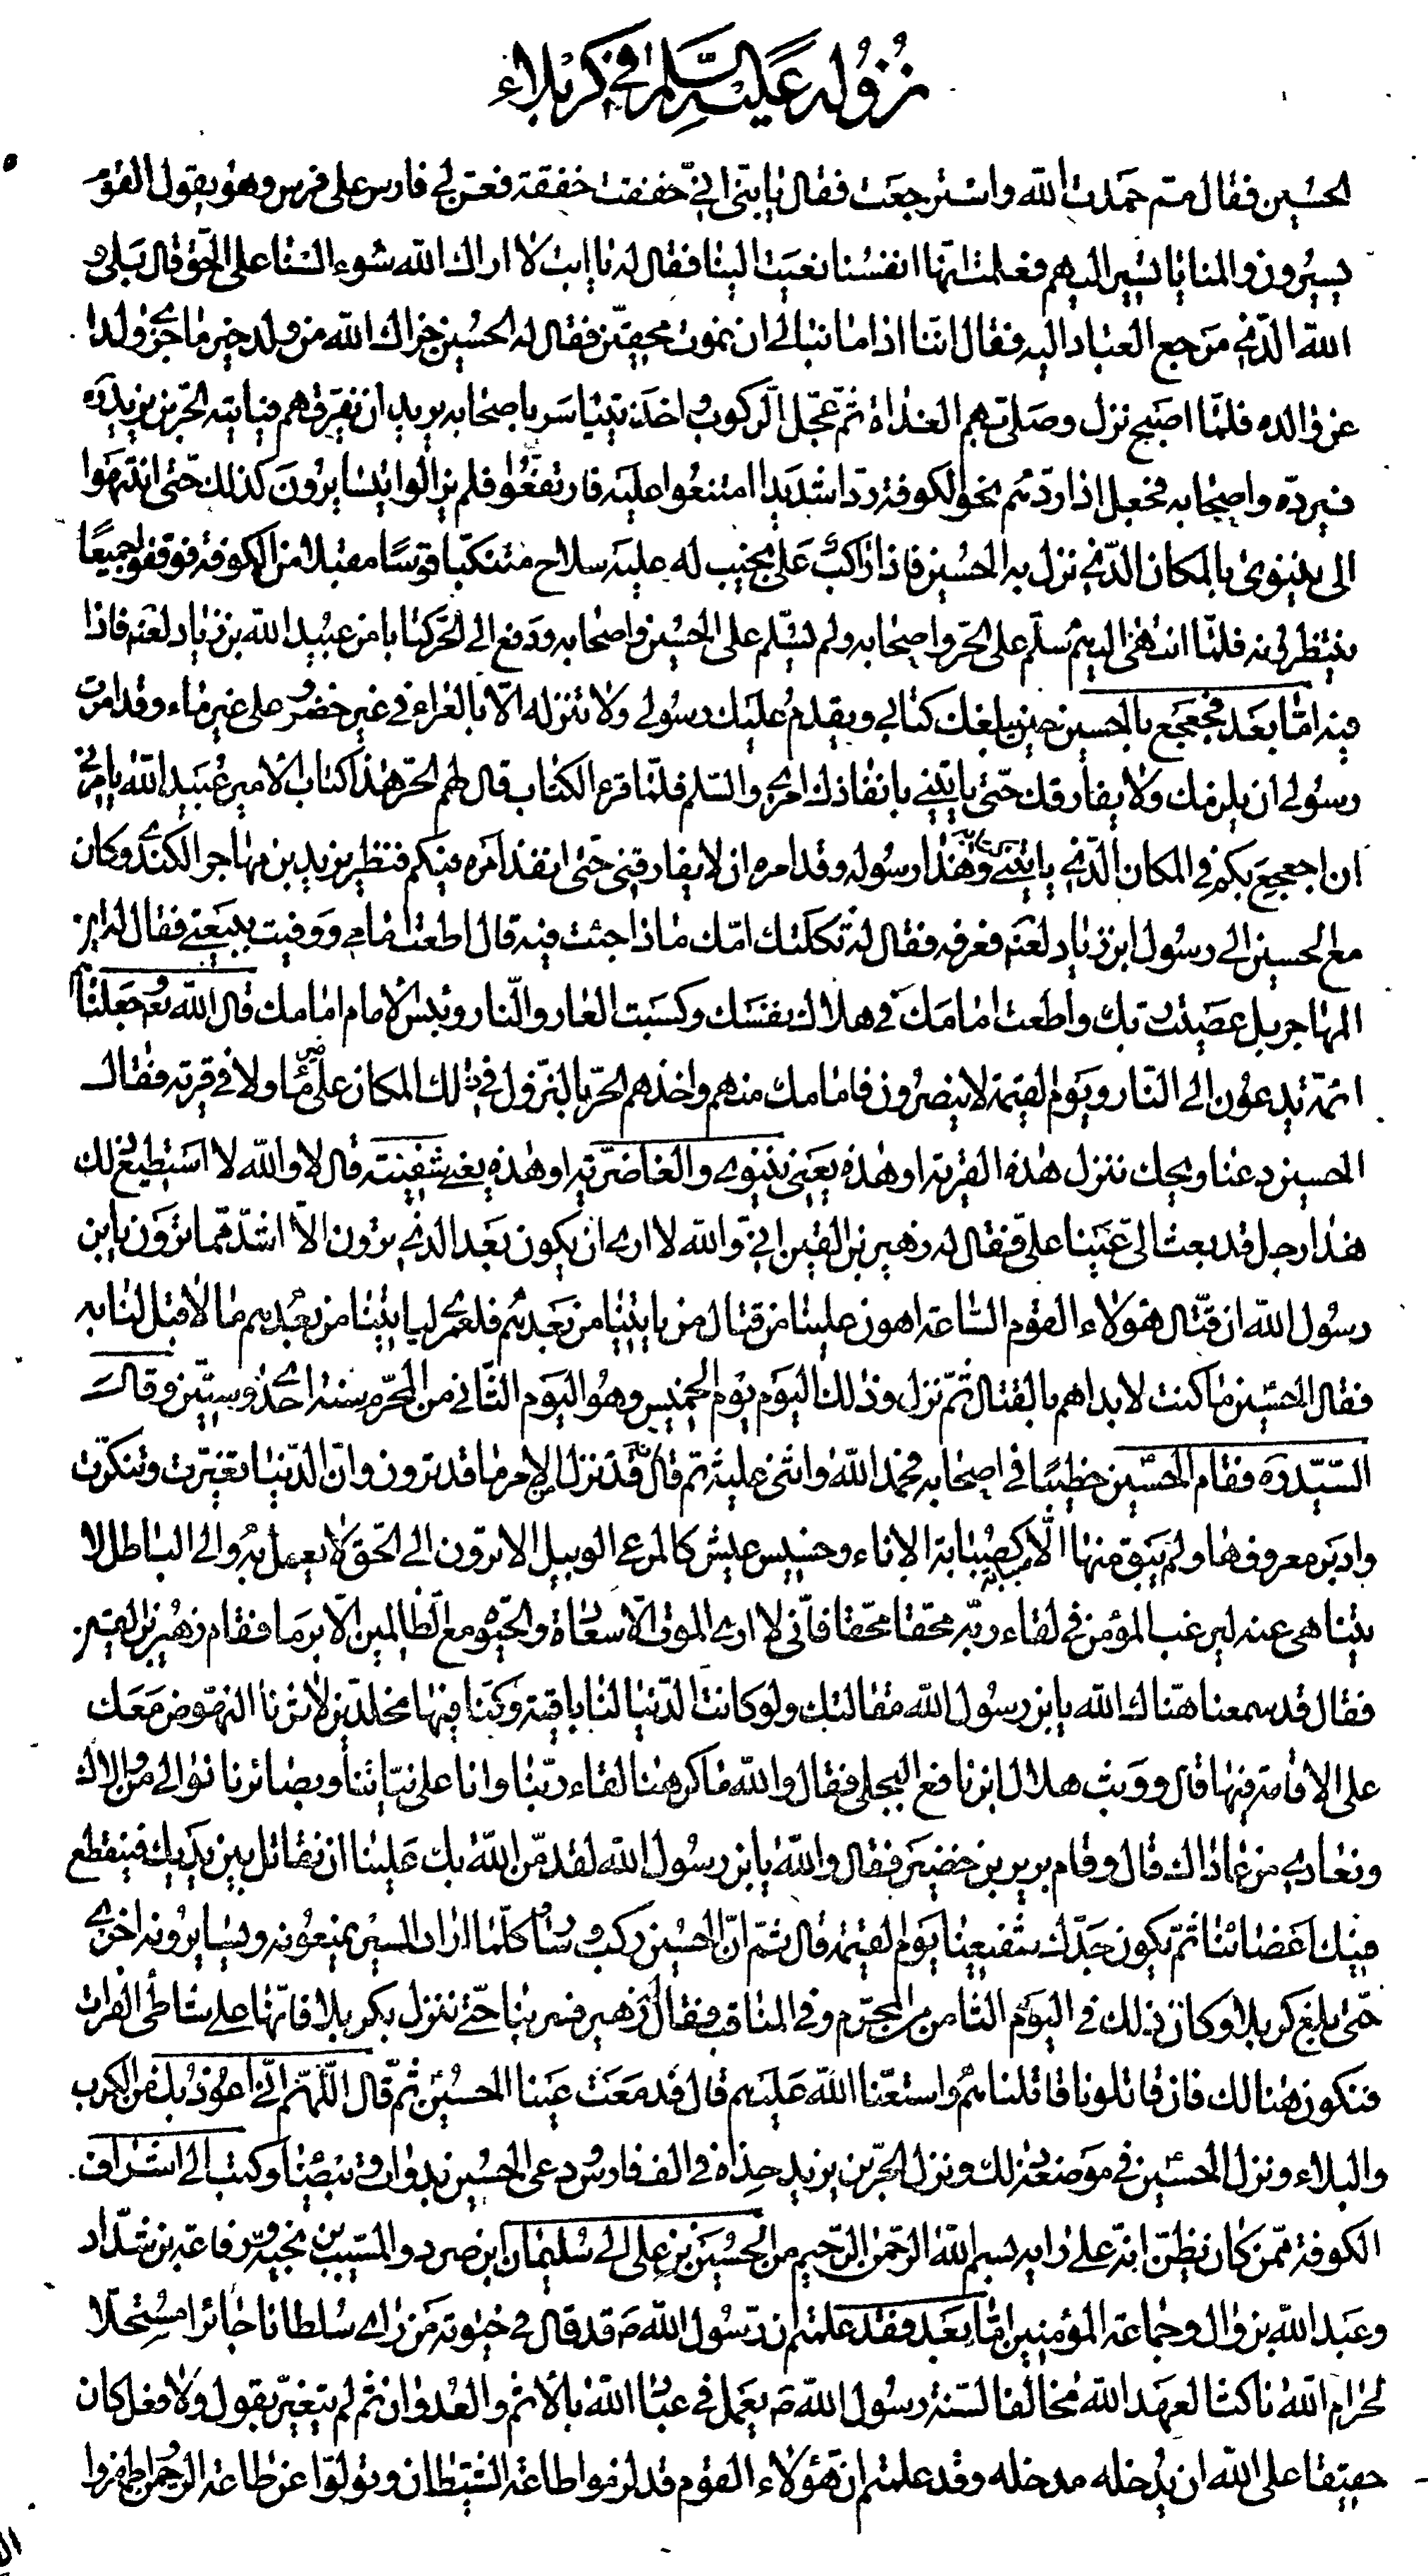 نزوله عليه السلام في كربلاء
الحسين فقال مم حمدت الله واسترجعت فقال يا بني اني خفقت خفقة فعن لي فارس على فرس وهو يقول القوم
يسيرون والمنايا تسير اليهم فعلمت انها انفسنا نعيت الينا فقال له يا ابت لا اراك الله سوء السنا على الحق قال بلى و
الله الذي مرجع العباد اليه فقال اننا اذا ما نبالي ان نموت محقين فقال له الحسين جزاك الله من ولد خير ما جزى ولدا
عن والده فلما اصبح نزل وصلى بهم الغداة ثم عجل الركوب واخذ يتياسر باصحابه يريد ان يفرقهم فيأتيه الحر بن يزيد ره
فيرده واصحابه فجعل اذا ردهم نحو الكوفة ردا شديدا امتنعوا عليه فارتفعوا فلم يزالوا يتسايرون كذلك حتى انتهوا
الى نينوى بالمكان الذي نزل به الحسين فاذا راكب على نجيب له عليه سلاح متنكبا قوسا مقبلا من الكوفة فوقفوا جميعا
ينتظرونه فلما انتهى اليهم سلم على الحر واصحابه ولم يسلم على الحسين واصحابه ودفع الى الحر كتابا من عبيد الله بن زياد لعنه فاذا
فيه اما بعد فجعجع بالحسين حين يبلغك كتابي ويقدم عليك رسولي ولا تنزله الا بالعراء في غير خضر وعلى غير ماء وقد امرت
رسولي ان يلزمك ولا يفارقك حتى ياتيني بانفاذك امري والسلم فلما قرء الكتاب قال لهم الحر هذا كتاب الامير عبيد الله يامرني
ان اجعجع بكم في المكان الذي ياتيني كتابه وهذا رسوله وقد امره ان لا يفارقني حتى انفذ امره فيكم فنظر يزيد بن مهاجر الكندي وكان
مع الحسين الى رسول ابن زياد لعنه فعرفه فقال له ثكلتك امك ماذا جئت فيه قال اطعت امامي ووفيت ببيعتي فقال له ابن
المهاجر بل عصيت ربك واطعت امامك في هلاك نفسك وكسبت العار والنار وبئس الامام امامك قال الله تع وجعلناهم
ائمة يدعون الى النار ويوم القيمة لا ينصرون فامامك منهم واخذهم الحر بالنزول في ذلك المكان على غير ماء ولا في قرية فقال
الحسين دعنا ويحك ننزل هذه القرية او هذه يعني نينوى والغاضرية او هذه يعني شفينة قال لا والله لا استطيع ذلك
هذا رجل قد بعث الي عينا علي فقال له زهير بن القين اني والله لا ارى ان يكون بعد الذي ترون الا اشد مما ترون يابن
رسول الله ان قتال هؤلاء القوم الساعة اهون علينا من قتال من ياتينا من بعدهم فلعمري لياتينا من بعدهم ما لا قبل لنا به
فقال الحسين ما كنت لابداهم بالقتال ثم نزل وذلك اليوم يوم الخميس وهو اليوم الثاني من المحرم سنة احدى وستين وقال
السيد ره فقام الحسين خطيبا في اصحابه فحمد الله واثنى عليه ثم قال انه قد نزل من الامر ما قد ترون وان الدنيا تغيرت وتنكرت
وادبر معروفها ولم يبق منها الا صبابة كصبابة الاناء وخسيس عيش كالمرعى الوبيل الا ترون الى الحق لا يعمل به والى الباطل لا
يتناهى عنه ليرغب المؤمن في لقاء ربه محقا محقا فاني لا ارى الموت الا سعادة والحيوة مع الظالمين الا برما فقام زهير بن القين
فقال قد سمعنا هناك الله يابن رسول الله مقالتك ولو كانت الدنيا لنا باقية وكنا فيها مخلدين لاثرنا النهوض معك
على الاقامة فيها قال ووثب هلال ابن نافع البجلي فقال والله ما كرهنا لقاء ربنا وانا على نياتنا وبصائرنا نوالي من والاك
ونعادي من عاداك قال وقام برير بن خضير فقال والله يابن رسول الله لقد من الله بك علينا ان نقاتل بين يديك فينقطع
فيك اعضائنا ثم يكون جدك شفيعنا يوم القيمة قال ثم ان الحسين ركب وسار كلما اراد المسير يمنعونه ويسايرونه اخرى
حتى بلغ كربلا وكان ذلك في اليوم الثامن من المحرم وفي المناقب فقال له زهير فسر بنا حتى ننزل بكربلا فانها على شاطئ الفرات
فنكون هنالك فان قاتلونا قاتلناهم واستعنا الله عليهم قال فدمعت عينا الحسين ثم قال اللهم اني اعوذ بك من الكرب
والبلاء ونزل الحسين في موضعه ذلك ونزل الحر بن يزيد حذاه في الف فارس ودعى الحسين بدواة وبيضاء وكتب الى اشراف
الكوفة ممن كان يظن انه على رايه بسم الله الرحمن الرحيم من الحسين بن علي الى سليمان ابن صرد والمسيب بن نجبة ورفاعة بن شداد
وعبد الله بن وال وجماعة المؤمنين اما بعد فقد علمتم ان رسول الله ص قد قال في حيوته من راى سلطانا جائرا مستحلا
لحرام الله ناكثا لعهد الله مخالفا لسنة رسول الله ص يعمل في عباد الله بالاثم والعدوان ثم لم يتغير بقول ولا فعل كان
حقيقا على الله ان يدخله مدخله وقد علمتم ان هؤلاء القوم قد لزموا طاعة الشيطان وتولوا عن طاعة الرحمن واظهروا